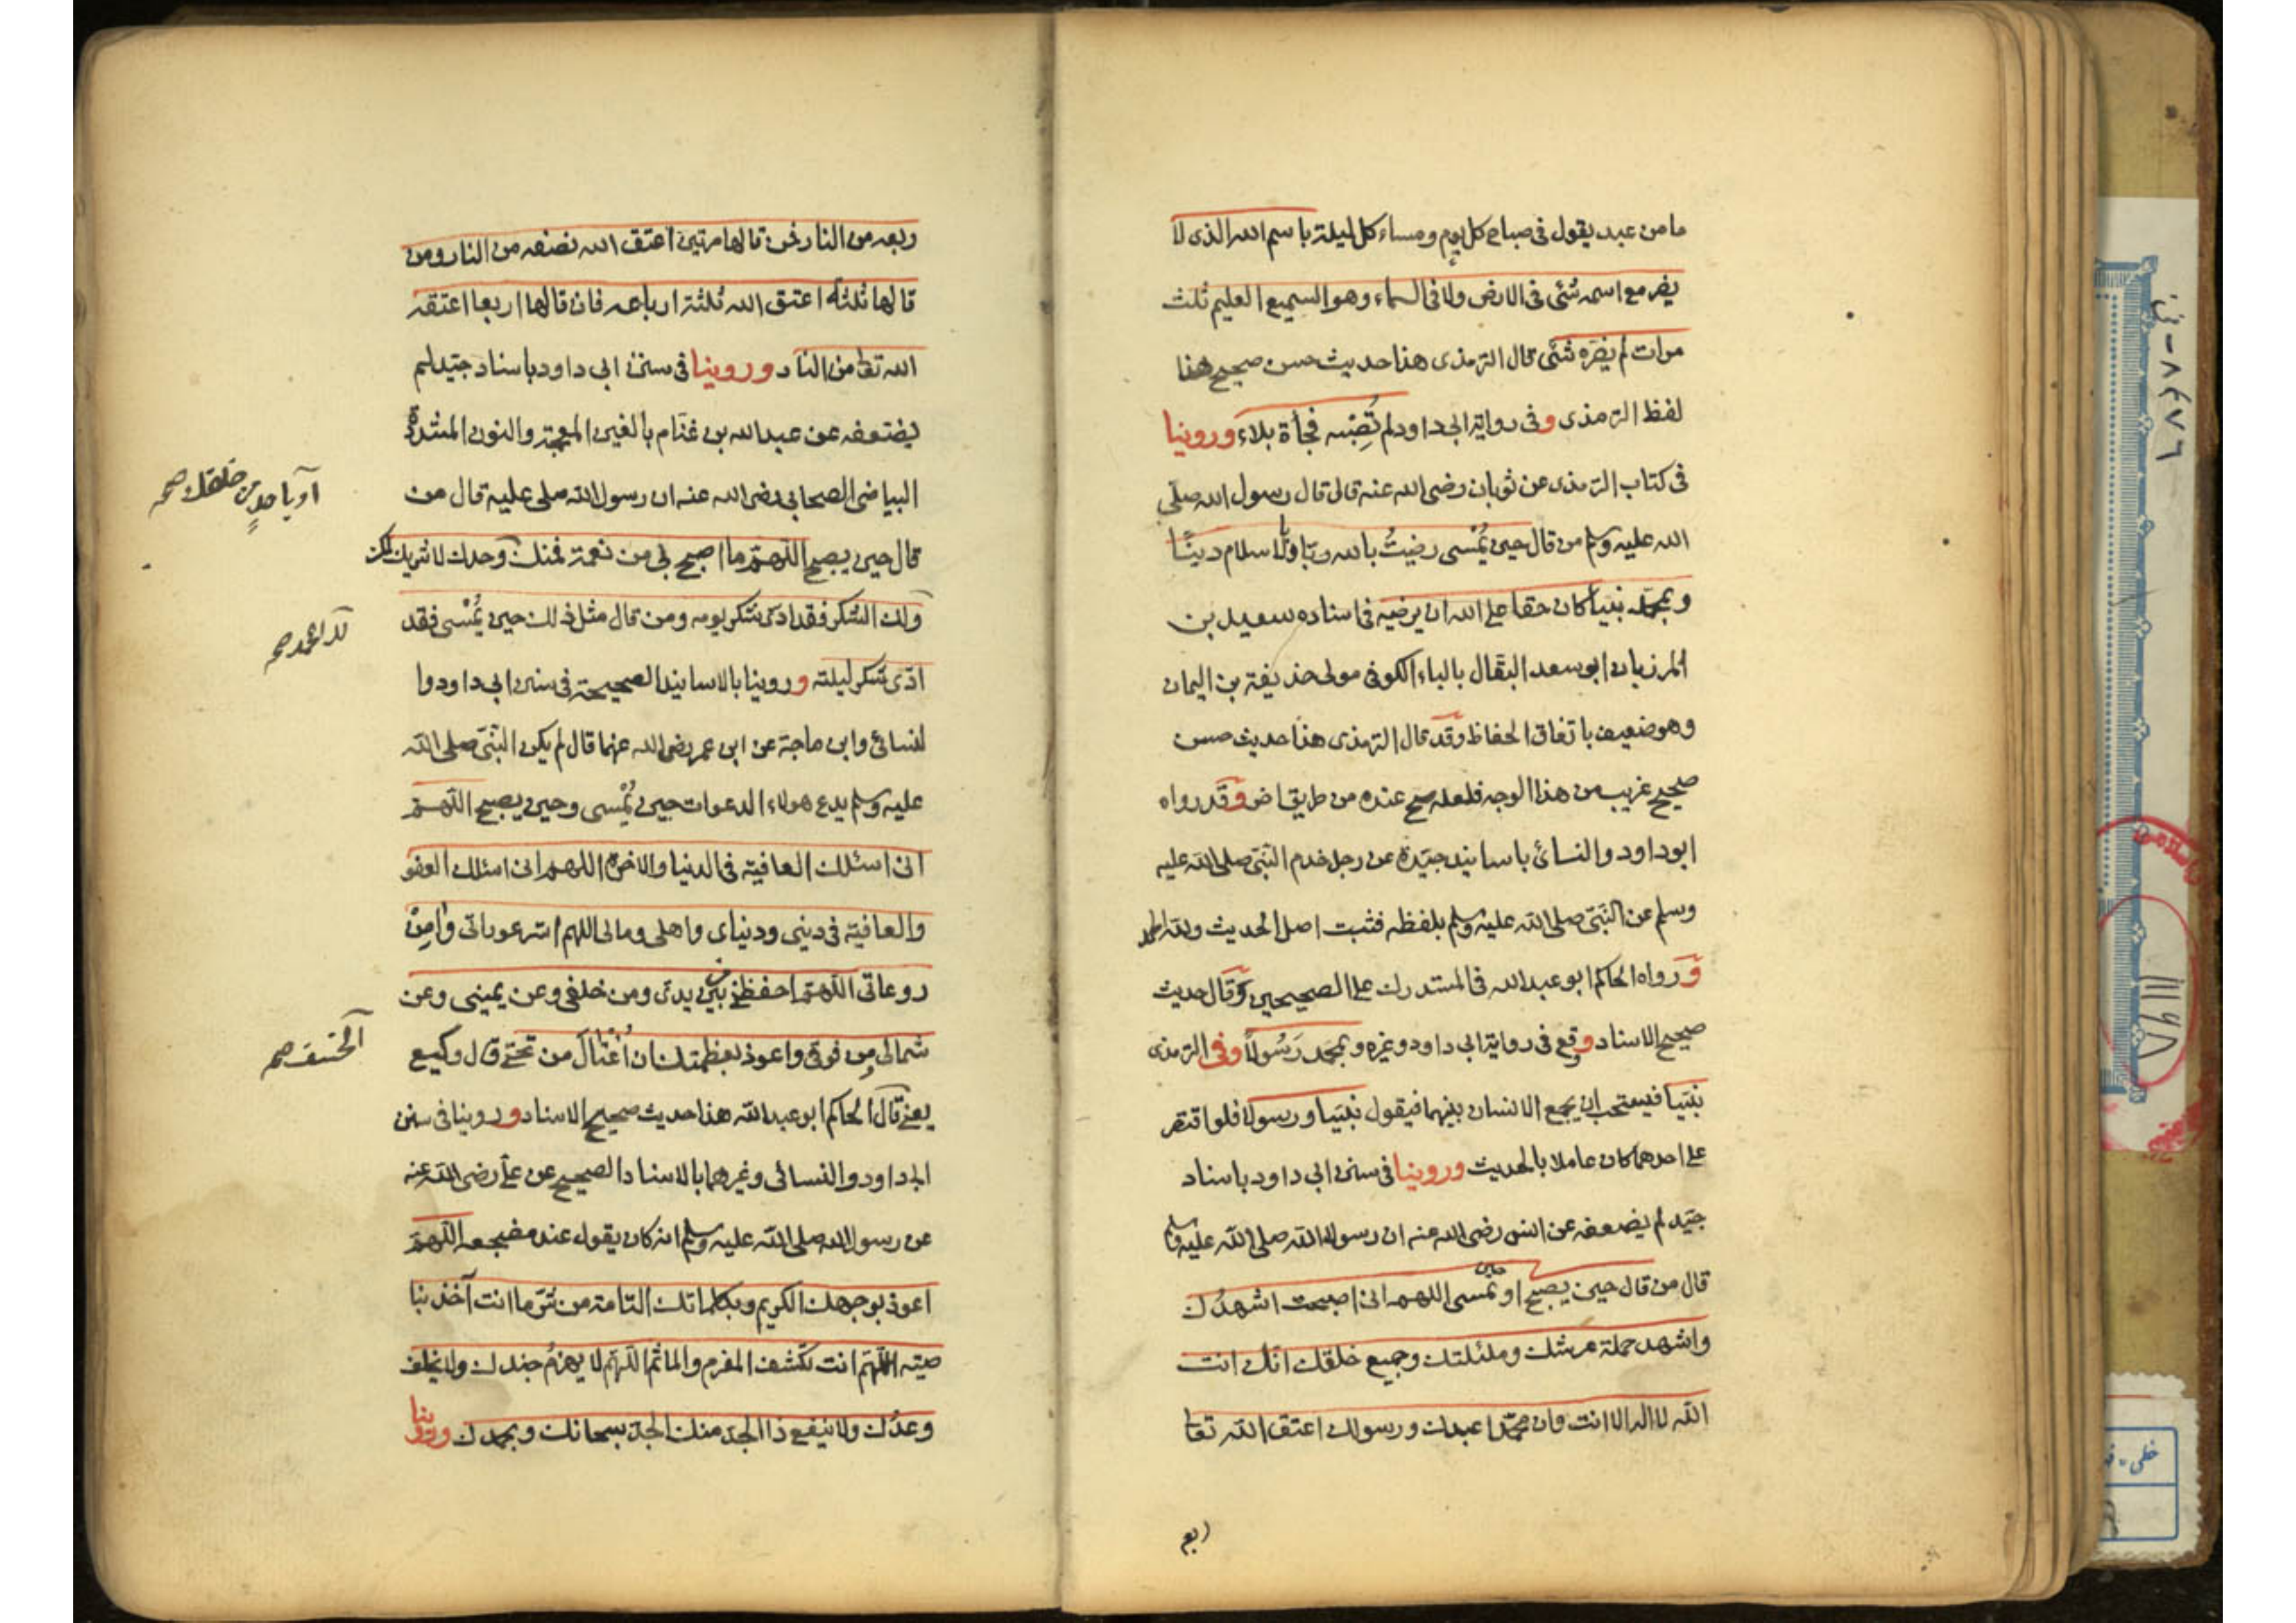 ما من عبد يقول فى صباح كل يوم ومساء كل ليلة باسم الله الذى لا
يضر مع اسمه شئى فى الارض ولا فى السماء وهو السميع العليم ثلث
مرات لم يضره شئى قال الترمذى هذا حديث حسن صحيح هذا
لفظ الترمذى وفى رواية ابى داود لم تُصِبْه فجأة بلاء وروينا
فى كتاب الترمذى عن ثوبان رضى الله عنه قال قال رسول الله صلى
الله عليه وسلم من قال حين يُمْسى رضيتُ بالله ربّا وبالاسلام دينًا
وبمحمّد نبيّا كان حقا على الله ان يرضيه فى اسناده سعيد بن
المرزبان ابو سعد البقّال بالباء الكوفى مولى حذيفة بن اليمان
وهو ضعيف باتفاق الحفاظ وقد قال الترمذى هذا حديث حسن
صحيح غريب من هذا الوجه فلعله صح عنده من طريق اخر وقد رواه
ابو داود والنسائ باسانيد جيّدة عن رجل خدم النبىّ صلى الله عليه
وسلم عن النبىّ صلى الله عليه وسلم بلفظه فثبت اصل الحديث ولله الحمد
ورواه الحاكم ابو عبد الله فى المستدرك على الصحيحين وقال حديث
صحيح الاسناد وقع فى رواية ابى داود وغيره وبمحمد رَسُولًا وفى الترمذى
نبيّا فيستحب ان يجمع الانسان بينهما فيقول نبيّا ورسولا فلو اقتصر
على احدهما كان عاملا بالحديث وروينا فى سنن ابى داود باسناد
جيّد لم يضعفه عن انس رضى الله عنه ان رسول الله صلى الله عليه وسلم
قال من قال حين يصبح او حين يمسى اللهم انى اصبحت اشهدُك
واشهد حملة عرشك وملئكتك وجميع خلقك انّك انت
الله لا اله الا انت وان محمّدا عبدك ورسولك اعتق الله تعا
ربع
ربعه من النار فمن قالها مرتين اعتق الله نصفه من النار ومن
قالها ثلثة اعتق الله ثلثة ارباعه فان قالها اربعا اعتقه
الله تعا من النار وروينا فى سنن ابى داود باسناد جيّد لم
يضعفه عن عبد الله بن غنّام بالغين المعجمة والنون المشدّدة
البياضى الصحابى رضى الله عنه ان رسول الله صلى عليه قال من
او باحدٍ من خلقك صح
قال حين يصبح اللهمّ ما اصبح بى من نعمة فمنك وحدك لا شريك لك
ولك الشكر فقد ادّى شكر يومه ومن قال مثل ذلك حين يُمْسى فقد
لك الحمد صح
ادّى شكر ليلته وروينا بالاسانيد الصحيحة فى سنن ابى داود وا
لنسائ وابن ماجة عن ابن عمر رضى الله عنهما قال لم يكن النبىّ صلى الله
عليه وسلم يدع هولاء الدعوات حين يُمْسى وحين يصبح اللّهمّ
انى اسئلك العافية فى الدنيا والاخرة اللهم انى اسئلك العفو
والعافية فى دينى ودنياى واهلى ومالى اللهم استر عوراتى وامِنْ
روعاتى اللهمّ احفظنى من بين يدىّ ومن خلفى وعن يمينى وعن
شمالى ومن فوقى واعوذ بعظمتك ان اُغْتالَ من تحتى قال وكيع
الخسف صح
يعنى قال الحاكم ابو عبد الله هذا حديث صحيح الاسناد وروينا فى سنن
ابى داود والنسائى وغيرهما بالاسناد الصحيح عن علىّ رضى الله عنه
عن رسول الله صلى الله عليه وسلم انه كان يقول عند مضجعه اللهمّ
اعوذ بوجهك الكريم وبكلماتك التامة من شرّ ما انت آخذ بنا
صيته اللّهمّ انت تكشف المغرم والماثم اللّهمّ لا يهزمُ جندك ولا يخلف
وعدُك ولا ينفع ذا الجدّ منك الجدّ سبحانك وبحمدك وروينا